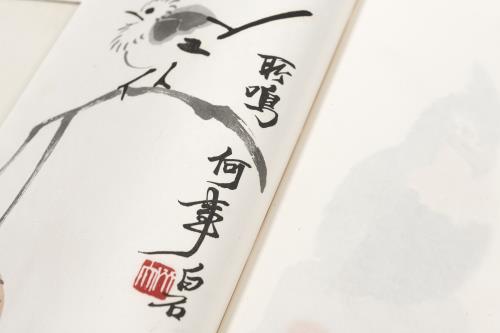 鳴何事白石